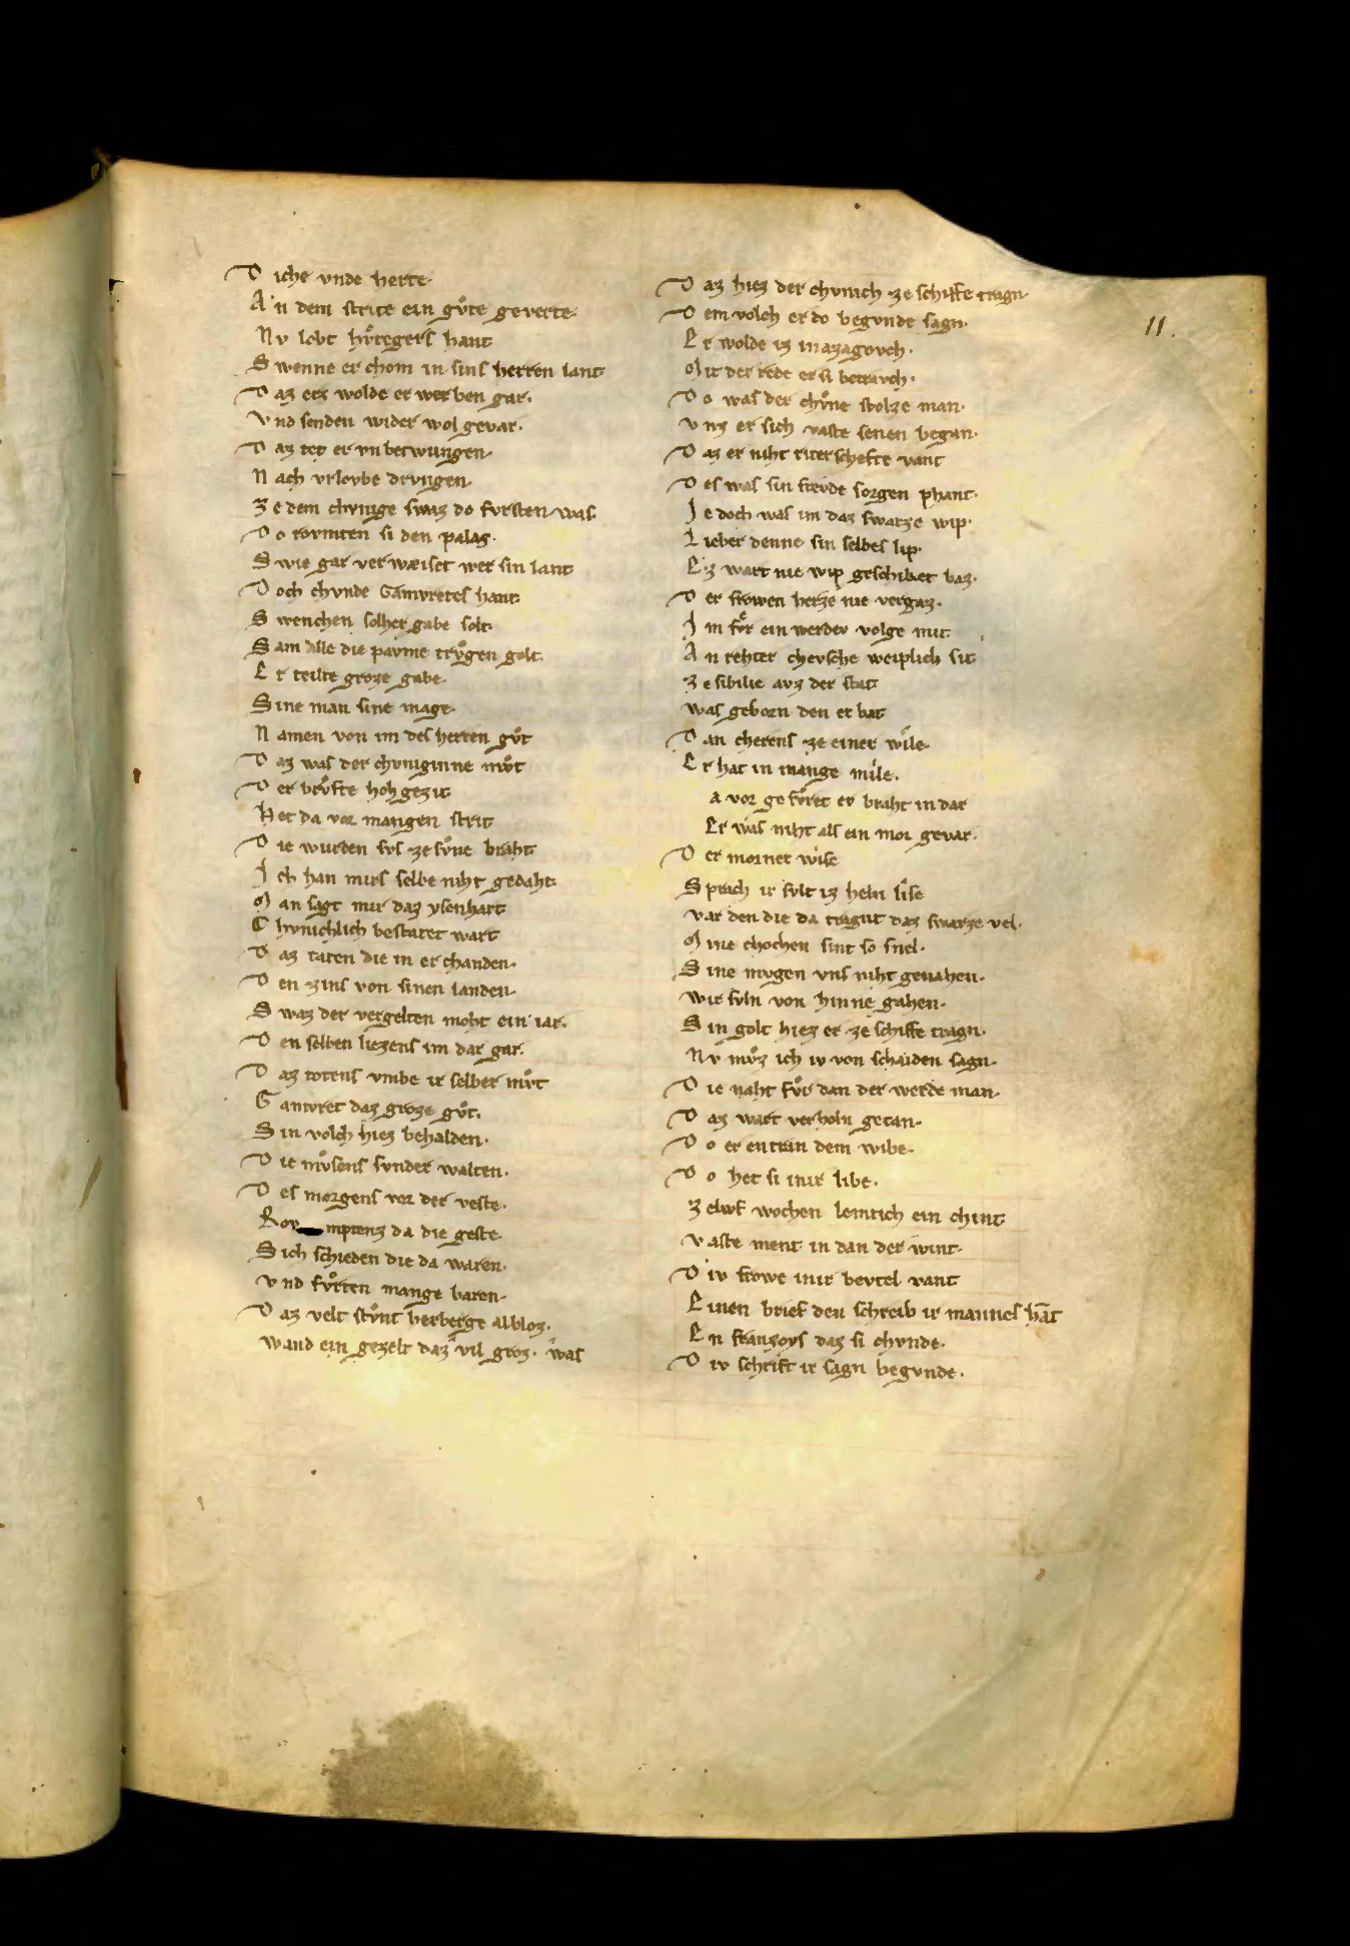 D iche vnde herte·
A n dem strite ein gvͦte geverte·
N v lobt hvͤtegers hant
S wenne er chom in sins herren lant
D az erz wolde er werben gar·
V nd senden wider wol gevar·
D az tet er vnbetwungen·
N ach vrlovbe drvngen·
Z e dem chvnige swaz do fvrsten was·
D o rovmten si den palas·
S wie gar verwæiset wer sin lant
D och chvnde Gamvretes hant
S wenchen solher gabe solt·
S am alle die pavme trvͤgen golt·
E r teilte groze gabe·
S ine man sine mage·
N amen von im des herren gvͦt
D az was der chvniginne mvͦt
D er brvͦfte hohgezit
H et da vor mangen strit
D ie wurden svs ze svͦne braht
J ch han mirs selbe niht gedaht·
M an sagt mir daz ysenhart
C hvnichlich bestatet wart
D az taten die in erchanden·
D en zins von sinen landen·
S waz der vergelten moht ein iar·
D en selben liezens im dar gar·
D az totens vmbe ir selber mvͦt
G amvret daz groze gvͦt·
S in volch hiez behalden·
D ie mvͦsens svnder walten·
D es morgens vor der veste·
Rov mptenz da die geste
S ich schieden die da waren·
V nd fvͦrten mange baren·
D az velt stvͦnt herberge albloz·
wand ein gezelt daz vil groz· was
D az hiez der chvnich ze schiffe tragn·
D em volch er do begvnde sagn·
E r wolde iz in azagovch·
M it der rede er si betrovch·
D o was der chvͦne stolze man·
V nz er sich vaste senen began·
D az er niht riterschefte vant
D es was sin frevde sorgen phant·
J e doch was im daz swarze wip·
L ieber denne sin selbes lip·
E z wart nie wip geschiket baz·
D er frowen herze nie vergaz·
J m fvͤr ein werder volge mit·
A n rehter chevsche weiplich sit
Z e sibilie avz der stat
was geborn den er bat
D an cherens ze einer wile·
E r hat in mange mile·
a vor gefvͤret er braht in dar
Er was niht als ein mor gevar·
D er mornet wise
S prach ir svlt iz heln lise
var den die da tragnt daz swarze vel·
M ine chochen sint so snel·
S ine mvgen vns niht genahen·
wir svln von hinne gahen·
S in golt hiez er ze schiffe tragn·
N v mvͦz ich iv von schaiden sagn·
D ie naht fvͦr dan der werde man·
D az wart verholn getan·
D o er entran dem wibe·
D o het si inir libe·
Z elwf wochen lemtich ein chint
v aste ment in dan der wint·
D iv frowe inir bevtel vant
E inen brief den schreib ir mannes ha̅t
E n franzoys daz si chvnde·
D iv schrift ir sagn begvnde·
11.